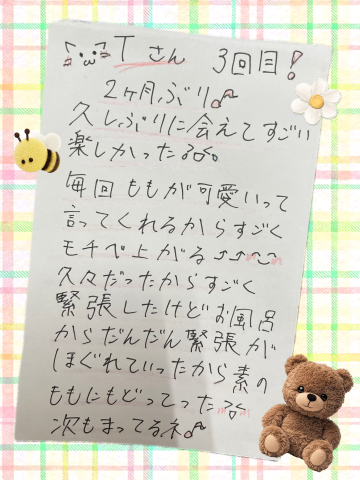 Tさん 3回目!
2ヶ月ぶり♪
久しぶりに会えてすごい
楽しかった
毎回ももが可愛いって
言ってくれるからすごく
モチベ上がる↑↑
久々だったからすごく
緊張したけどお風呂
からだんだん緊張が
ほぐれていったから素の
ももにもどってった
次もまってるネ♪